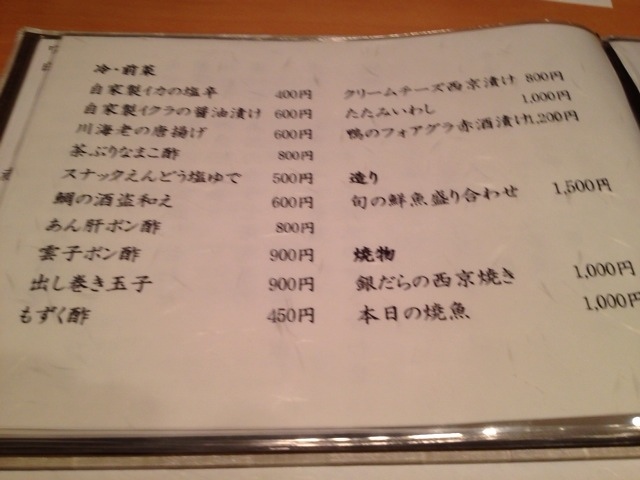 冷・前菜
自家製イカの塩辛 400円
自家製イクラの醤油漬け 600円
川海老の唐揚げ 600円
茶ぶりなまこ酢 800円
スナックえんどう塩ゆで 500円
鯛の酒盗和え 600円
あん肝ポン酢 800円
雲子ポン酢 900円
出し巻き玉子 900円
もずく酢 450円
クリームチーズ西京漬け 800円
たたみいわし 1,000円
鴨のフォアグラ赤酒漬け1,200円
造り
旬の鮮魚盛り合わせ 1,500円
焼物
銀だらの西京焼き 1,000円
本日の焼魚 1,000円